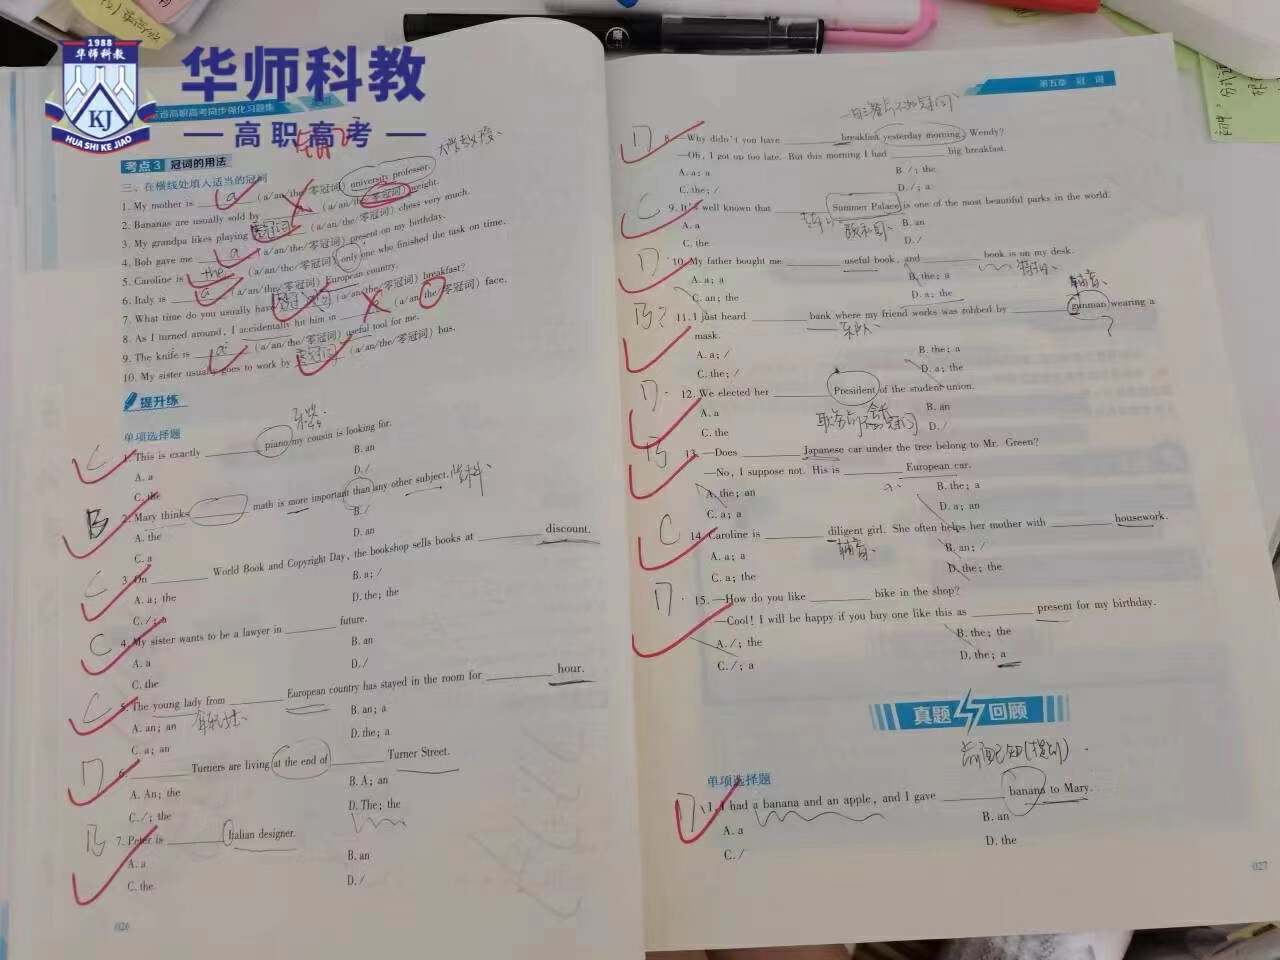 1988
华师科教
KJ
HUA SHI KE JIAO
华师科教
高职高考
省高职高考同步强化习题集
考点3 冠词的用法
大学教授
三、在横线处填入适当的冠词
1. My mother is a (a/an/the/零冠词) university professor.
2. Bananas are usually sold by (a/an/the/零冠词) weight.
3. My grandpa likes playing 零冠词 (a/an/the/零冠词) chess very much.
4. Bob gave me a (a/an/the/零冠词) present on my birthday.
5. Caroline is the (a/an/the/零冠词) only one who finished the task on time.
6. Italy is a (a/an/the/零冠词) European country.
7. What time do you usually have (a/an/the/零冠词) breakfast?
8. As I turned around, I accidentally hit him in (a/an/the/零冠词) face.
9. The knife is a (a/an/the/零冠词) useful tool for me.
10. My sister usually goes to work by 零冠词 (a/an/the/零冠词) bus.
提升练
单项选择题
C 1. This is exactly ______ piano my cousin is looking for.
A. a B. an
C. the D. /
B 2. Mary thinks ______ math is more important than any other subject. 学科
A. the B. /
C. a D. an
C 3. On ______ World Book and Copyright Day, the bookshop sells books at ______ discount.
A. a; the B. a; /
C. /; a D. the; the
C 4. My sister wants to be a lawyer in ______ future.
A. a B. an
C. the D. /
C 5. The young lady from ______ European country has stayed in the room for ______ hour.
A. an; an B. an; a
C. a; an D. the; a
D 6. ______ Turners are living at the end of ______ Turner Street.
A. An; the B. A; an
C. /; the D. The; the
B 7. Peter is ______ Italian designer.
A. a B. an
C. the D. /
026
第五章 冠 词
D 8. —Why didn't you have ______ breakfast yesterday morning, Wendy?
—Oh, I got up too late. But this morning I had ______ big breakfast.
A. a; a B. /; the
C. the; / D. /; a
C 9. It's well known that ______ Summer Palace is one of the most beautiful parks in the world.
A. a B. an
C. the D. /
颐和园
D 10. My father bought me ______ useful book, and ______ book is on my desk.
A. a; a B. the; a
C. an; the D. a; the
特指
辅音
B? 11. I just heard ______ bank where my friend works was robbed by ______ gunman wearing a
mask.
A. a; / B. the; a
C. the; / D. a; the
D 12. We elected her ______ President of the student union.
A. a B. an
C. the D. /
B 13. —Does ______ Japanese car under the tree belong to Mr. Green?
—No, I suppose not. His is ______ European car.
A. the; an B. the; a
C. a; a D. a; an
C 14. Caroline is ______ diligent girl. She often helps her mother with ______ housework.
辅音
A. a; a B. an; /
C. a; the D. the; the
D 15. —How do you like ______ bike in the shop?
—Cool! I will be happy if you buy one like this as ______ present for my birthday.
A. /; the B. the; the
C. /; a D. the; a
真题 回顾
单项选择题
D 1. I had a banana and an apple, and I gave ______ banana to Mary.
A. a B. an
C. / D. the
027